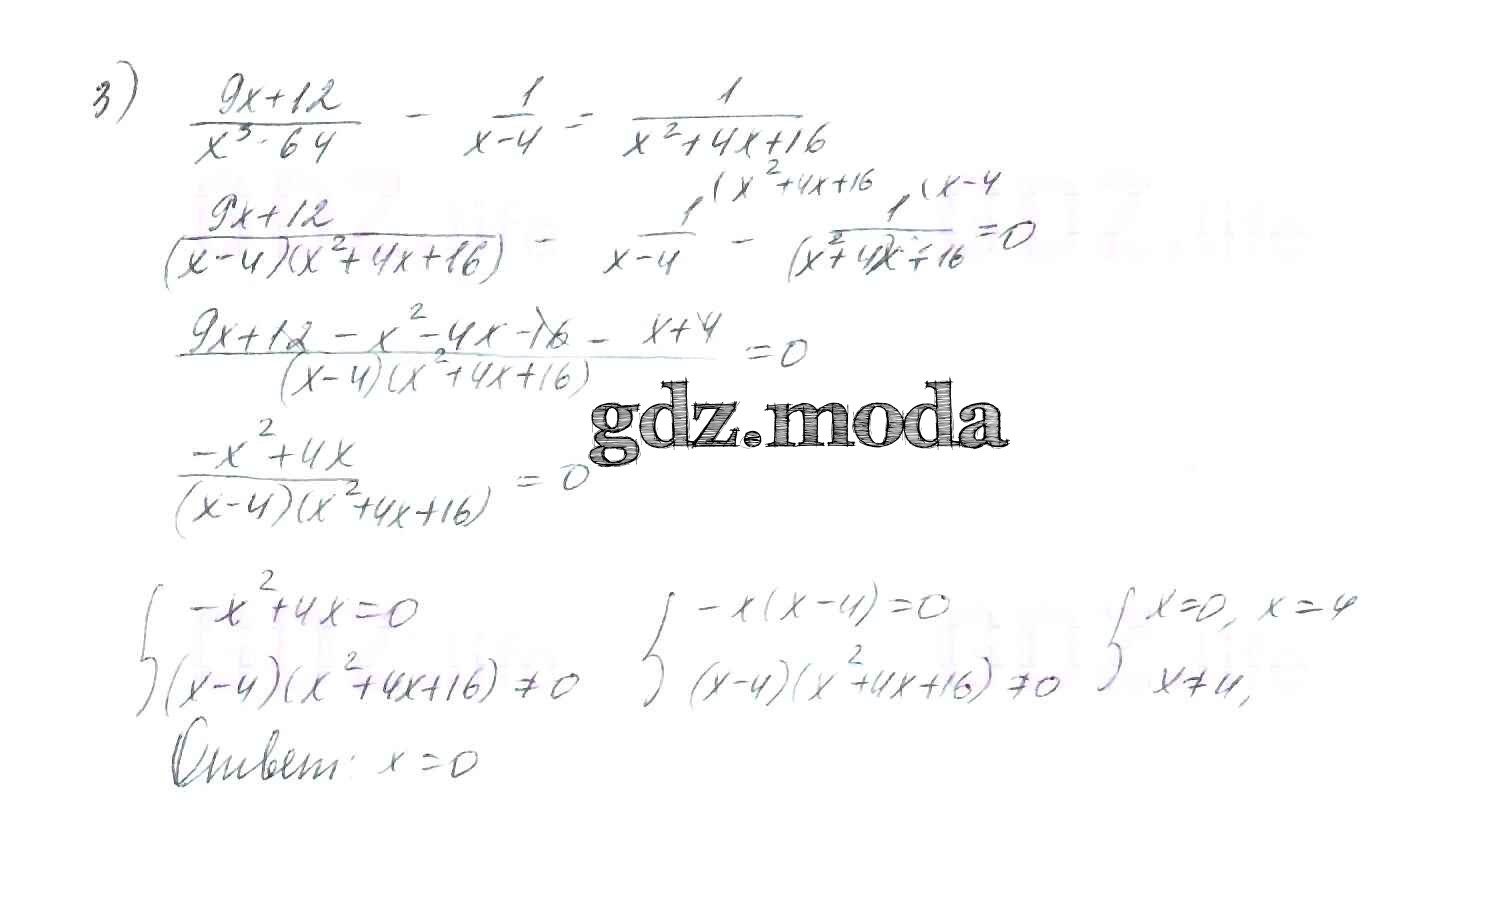 3) (9x+12)/(x³-64) - 1/(x-4) = 1/(x²+4x+16)
(9x+12)/((x-4)(x²+4x+16)) - 1/(x-4) (x²+4x+16 - 1/(x²+4)x+16 (x-4 = 0
(9x+12 - x² - 4x - 16 - x+4)/((x-4)(x²+4x+16)) = 0
gdz.moda
(-x²+4x)/((x-4)(x²+4x+16)) = 0
{ -x²+4x=0 { -x(x-4)=0 { x=0, x=4
(x-4)(x²+4x+16) ≠ 0 (x-4)(x²+4x+16) ≠ 0 x≠4,
Ответ: x=0